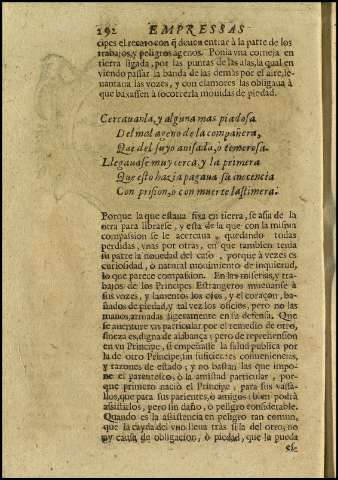 292 EMPRESSAS
cipes el recato con q̃ deuen entrar à la parte de los
trabajos, y peligros agenos. Ponia vna corneja en
tierra ligada, por las puntas de las alas, la qual en
viendo passar la banda de las demàs por el aire, le-
uantaua las vozes, y con clamores las obligaua à
que baxassen à socorrerla mouidas de piedad.
Cercauanla, y alguna mas piadosa
Del mal ageno de la compañera,
Que del suyo auisada, ò temerosa.
Llegauase muy cerca, y la primera
Que esto hazia pagaua su inocencia
Con prision, o con muerte lastimera.
Porque la que estaua fixa en tierra, se asia de la
otra para librarse, y esta de la que con la misma
compassion se le acercaua, quedando todas
perdidas, vnas por otras, en que tambien tenia
su parte la nouedad del caso, porque à vezes es
curiosidad, ò natural mouimiento de inquietud,
lo que parece compassion. En las miserias, y tra-
bajos de los Principes Estrangeros mueuanse à
sus vozes, y lamentos los ojos, y el coraçon, ba-
ñados de piedad, y tal vez los oficios, pero no las
manos, armadas ligeramente en su defensa. Que
se auenture vn particular por el remedio de otro,
fineza es, digna de alabança; pero de reprehension
en vn Principe, si empeñasse la salud publica por
la de otro Principe, sin suficientes conueniencias,
y razones de estado; y no bastan las que impo-
ne el parentesco, ò la amistad particular, por-
que primero naciò el Principe, para sus vassa-
llos, que para sus parientes, ò amigos: bien podrà
assistirlos, pero sin daño, ò peligro considerable.
Quando es la assistencia en peligro tan comun,
que la cayda del vno lleua tràs si la del otro, no
ay causa de obligacion, ò piedad, que la pueda